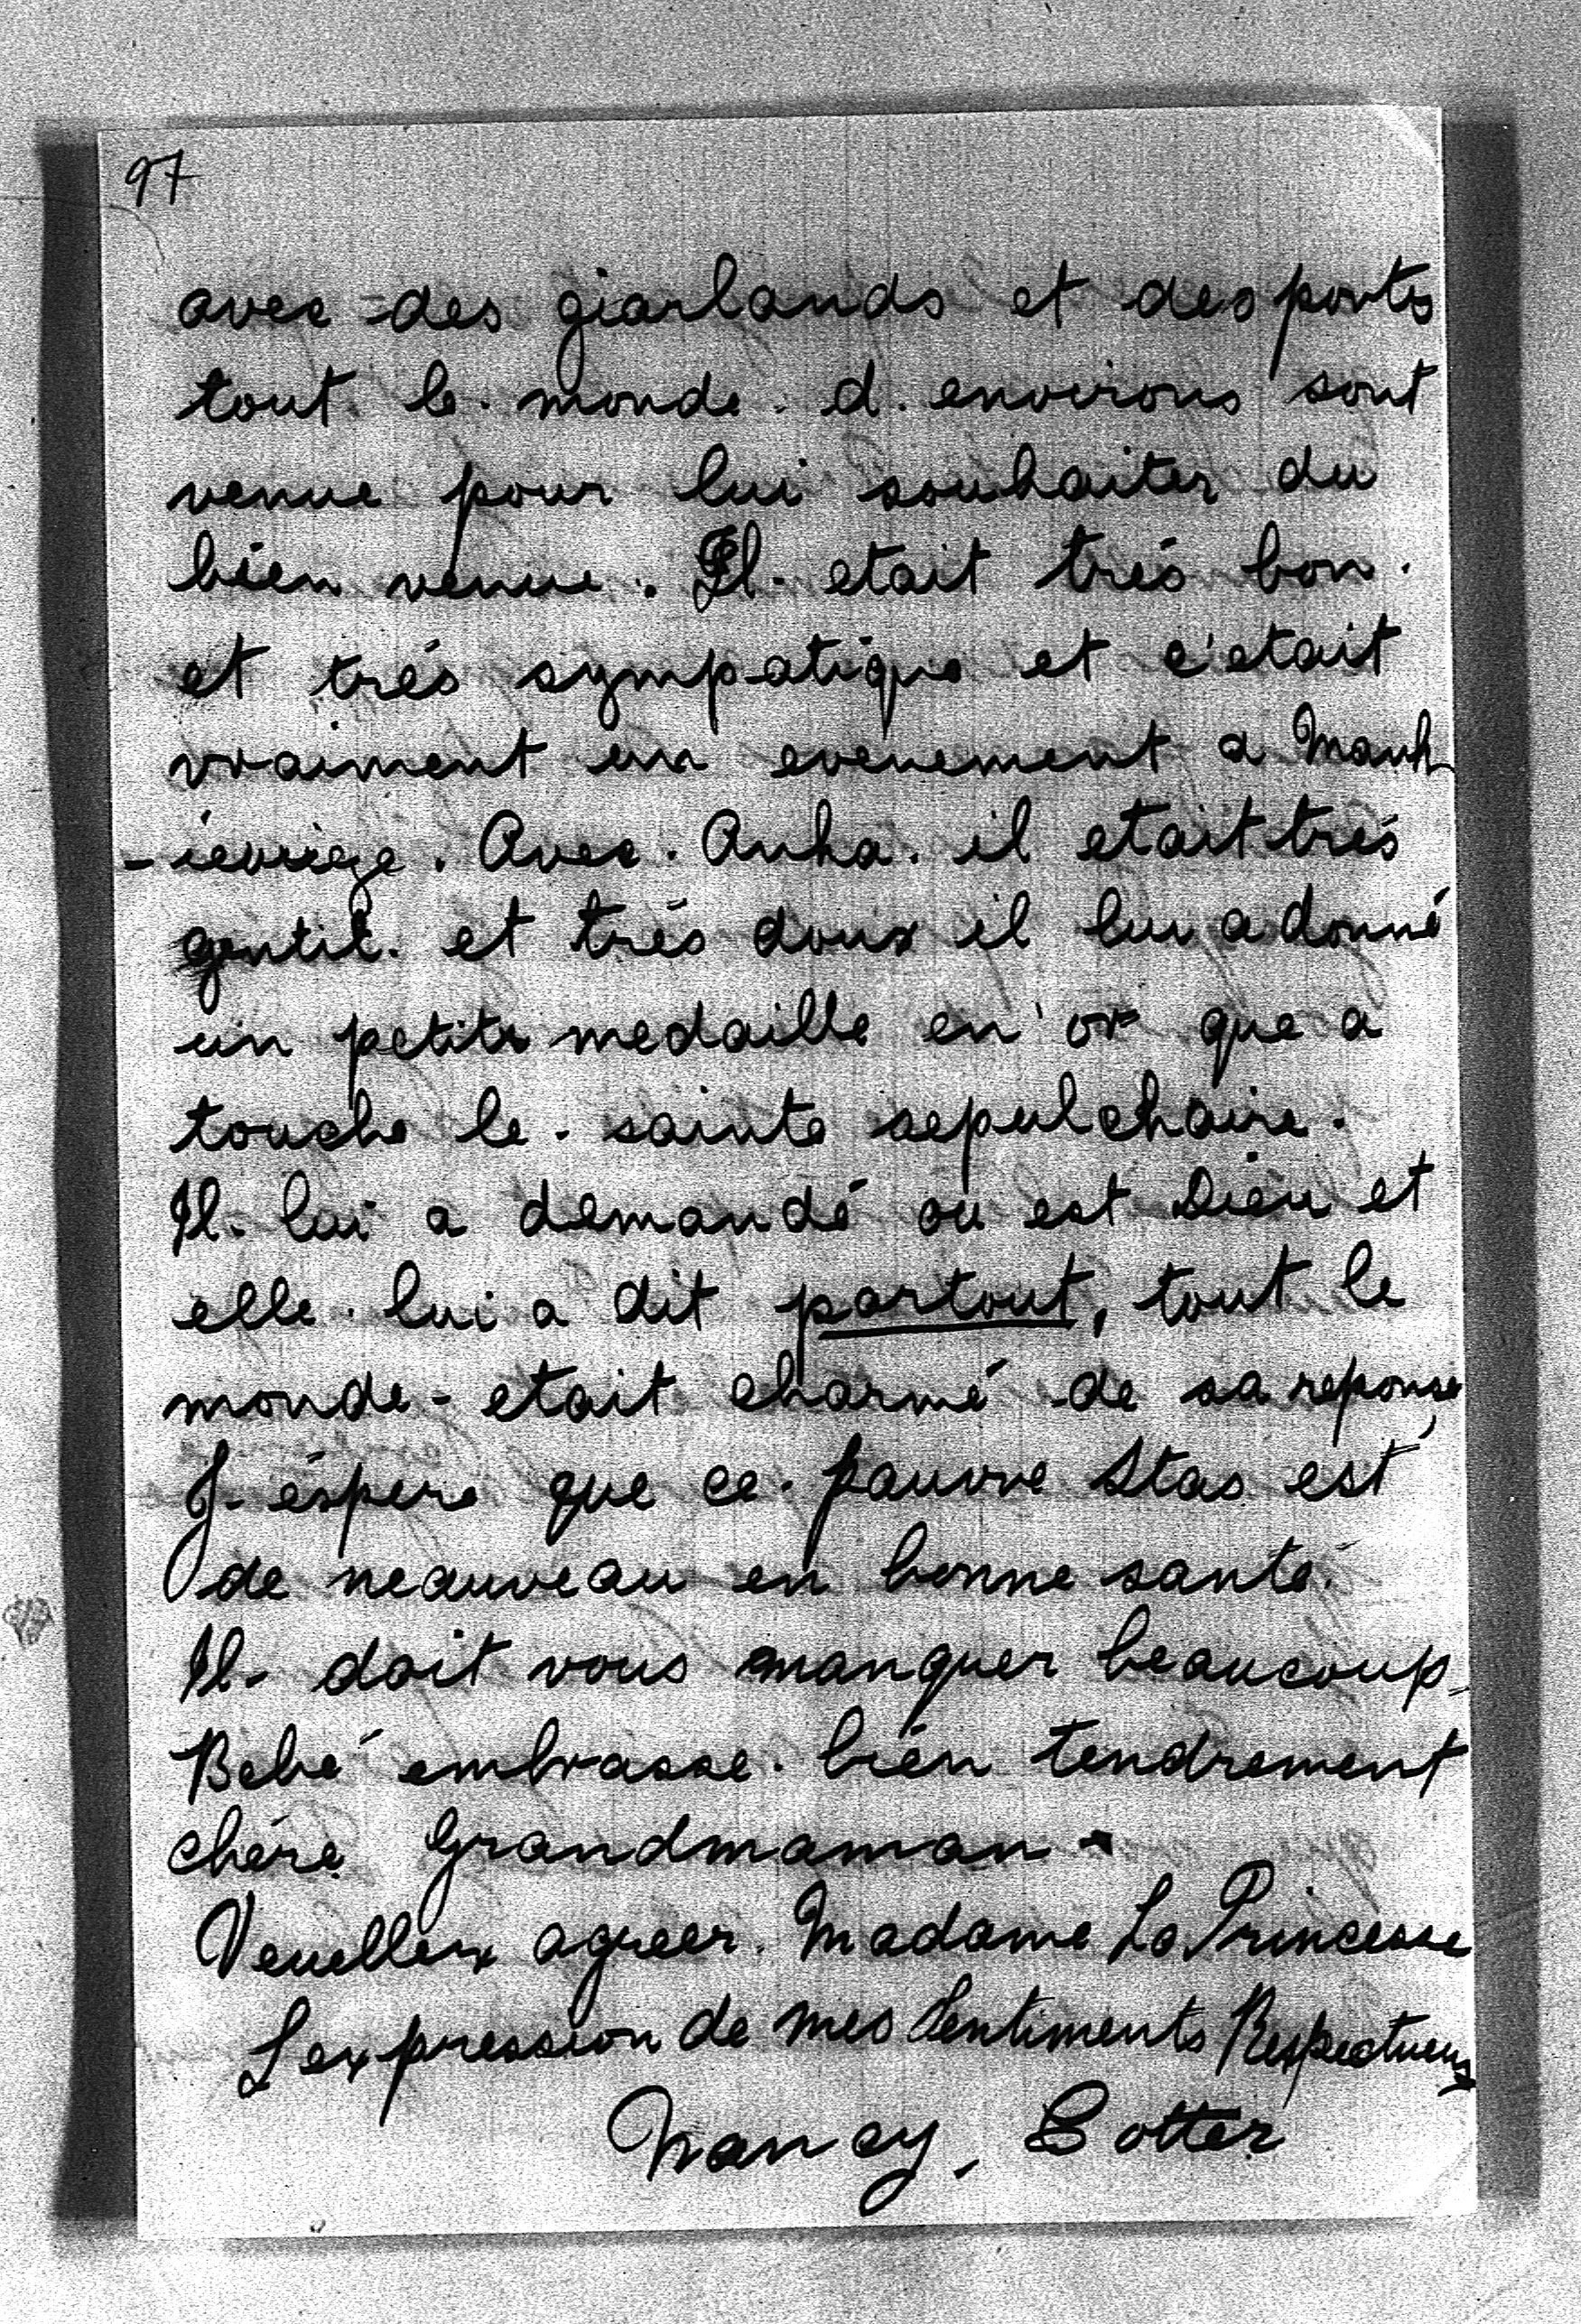 97
avec des giarlands et des ports
tout le monde d. environs sont
venue pour lui souhaiter du
bien venue. Il etait trés bon.
et trés sympatique et c'etait
vraiment un evenement a Mank
-iewicze. Avec. Anka. il etait trés
gentil. et trés doux il lui a donné
un petite medaille en or que a
touche le. sainte sepulchaire.
Il. lui a demandé ou est Dieu et
elle. lui a dit partout, tout le
monde - etait charmé de sa reponse
J. éspere que ce. pauvre Stas est
de neauveau en bonne santé.
Il. doit vous manquer beaucoup
Bebé embrasse. bién tendrement
chére Grandmaman.
Veuellex agreer. Madame La Princesse
L expression de mes Sentiments Respectueux
Nancy. Cotter